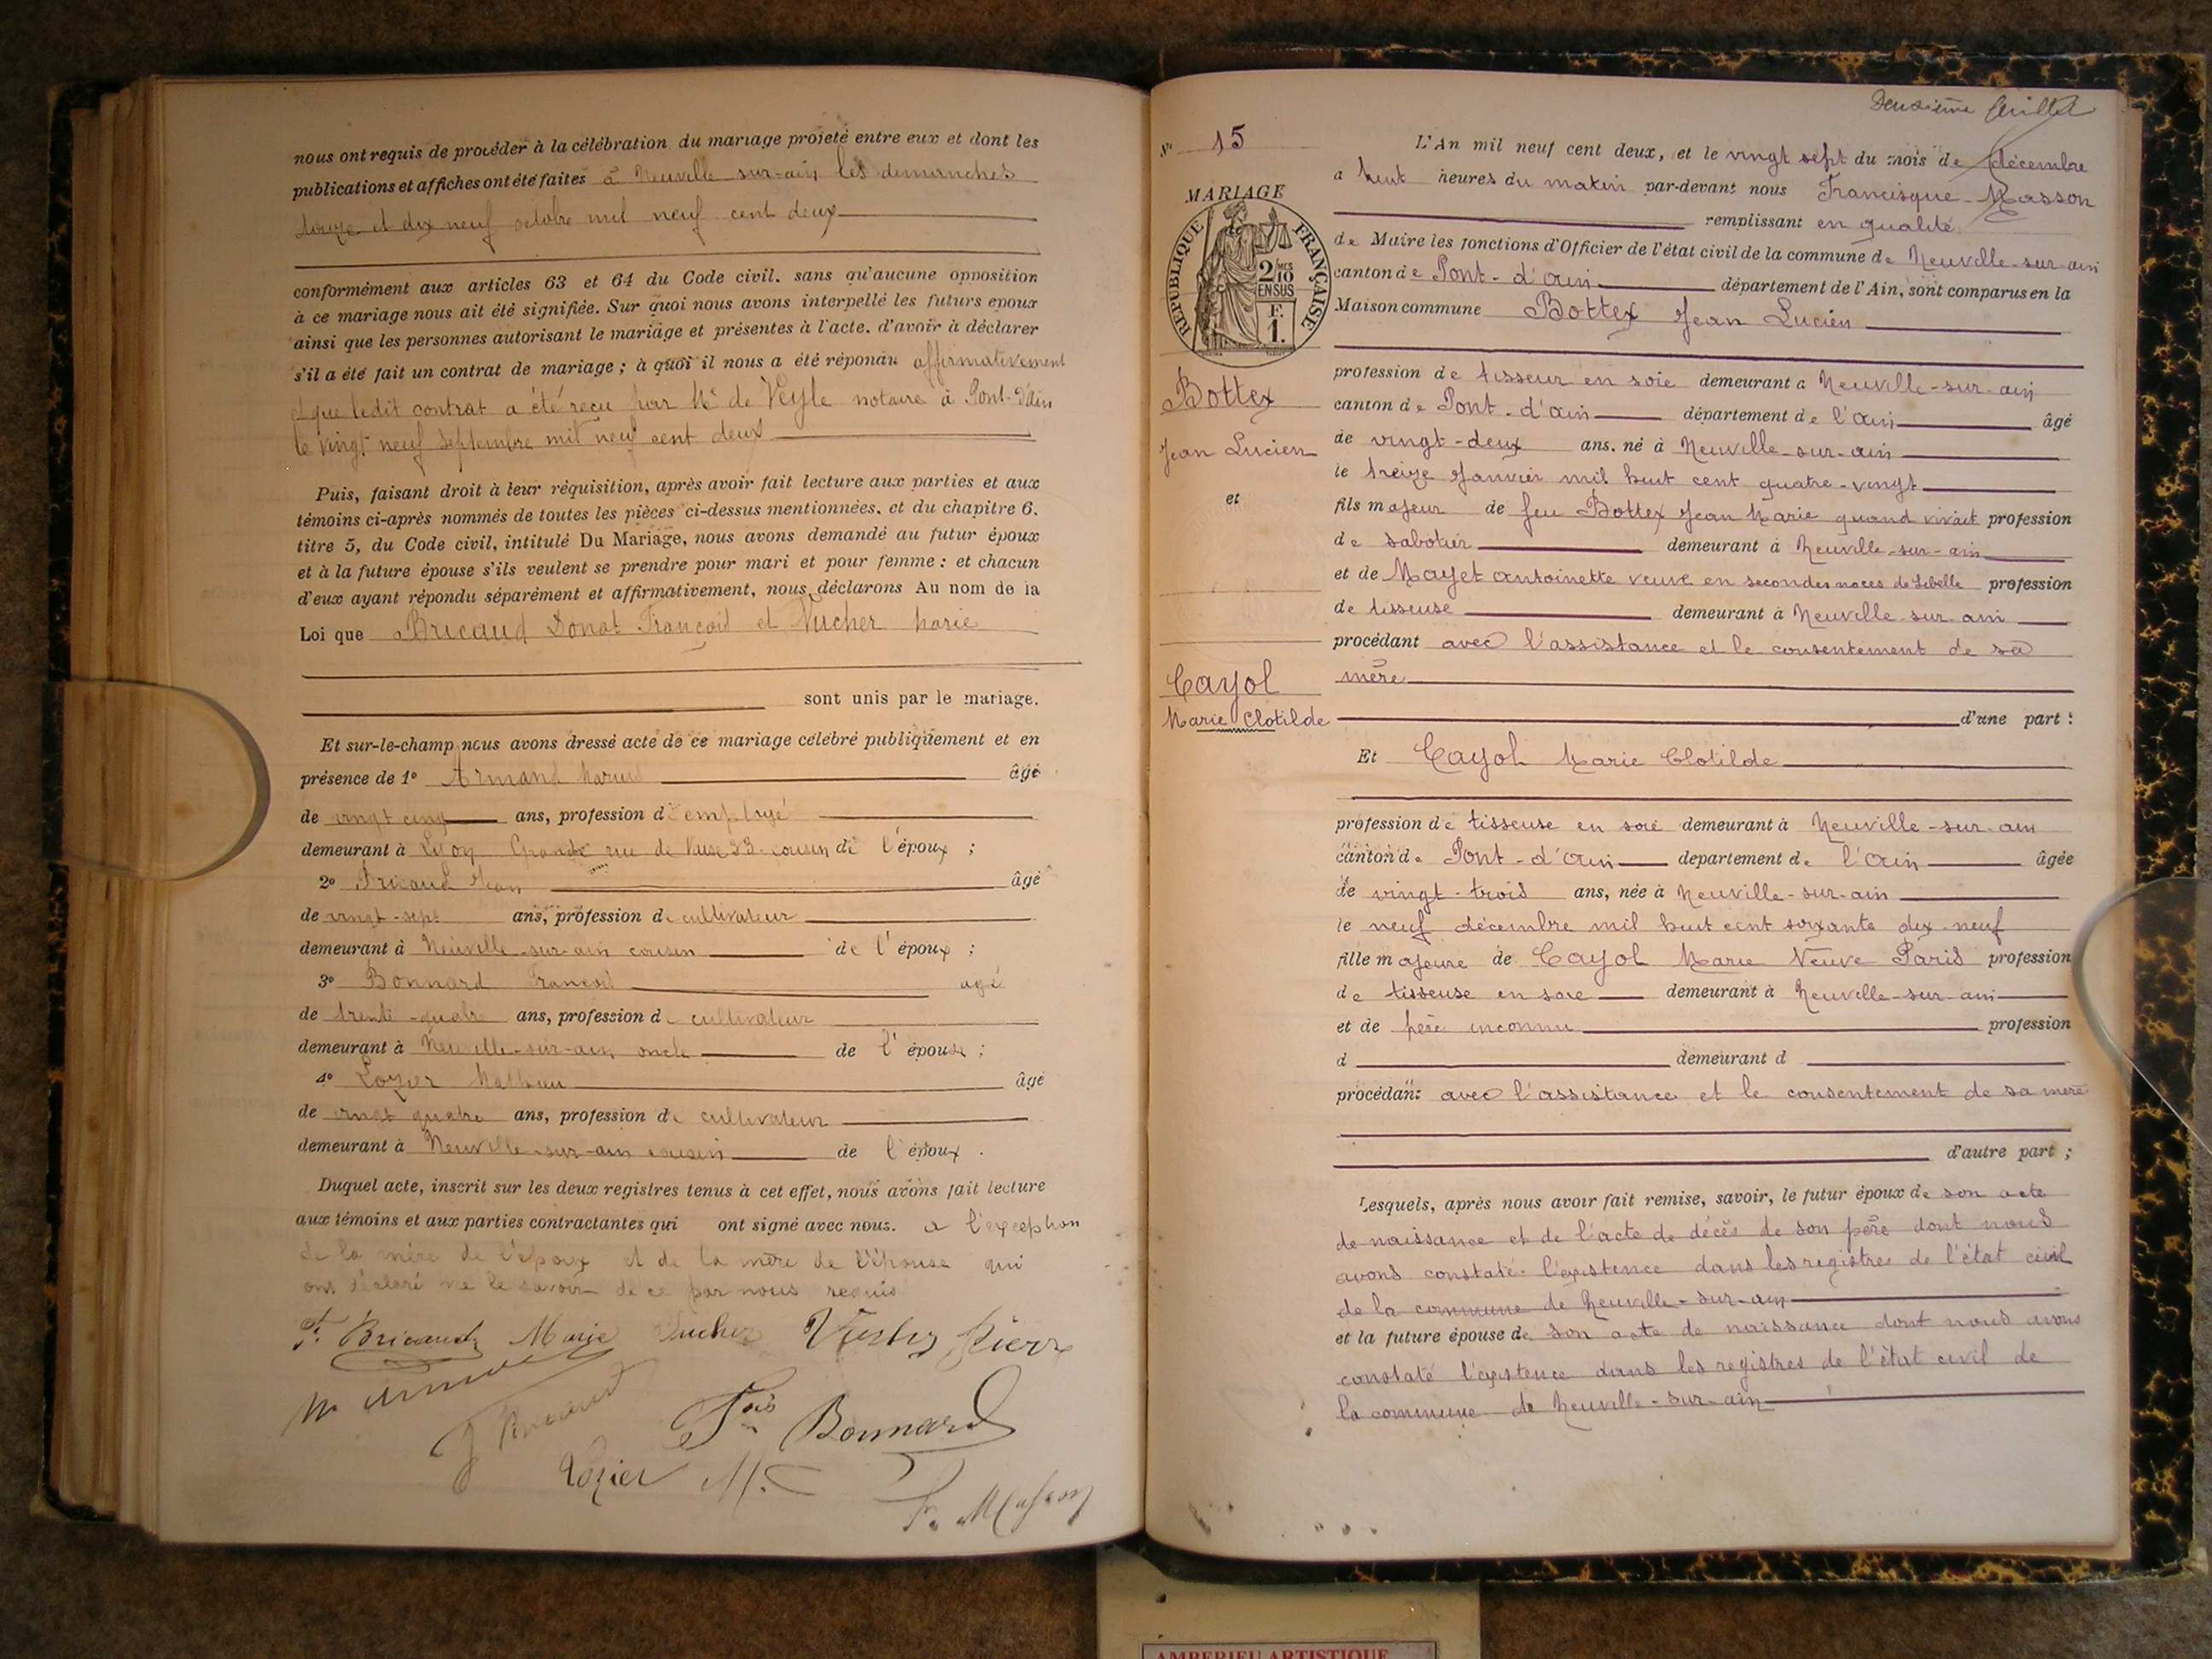 nous ont requis de procéder à la célébration du mariage projeté entre eux et dont les
publications et affiches ont été faites à Neuville-sur-ain les dimanches
douze et dix neuf octobre mil neuf cent deux
conformément aux articles 63 et 64 du Code civil. sans qu'aucune opposition
à ce mariage nous ait été signifiée. Sur quoi nous avons interpellé les futurs époux
ainsi que les personnes autorisant le mariage et présentes à l'acte. d'avoir à déclarer
s'il a été fait un contrat de mariage ; à quoi il nous a été répondu affirmativement
et que ledit contrat a été reçu par Me de Veyle notaire à Pont-d'Ain
le vingt neuf septembre mil neuf cent deux
Puis, faisant droit à leur réquisition, après avoir fait lecture aux parties et aux
témoins ci-après nommés de toutes les pièces ci-dessus mentionnées. et du chapitre 6.
titre 5, du Code civil, intitulé Du Mariage, nous avons demandé au futur époux
et à la future épouse s'ils veulent se prendre pour mari et pour femme : et chacun
d'eux ayant répondu séparément et affirmativement, nous déclarons Au nom de la
Loi que Bricaud Donat François et Vucher Marie
sont unis par le mariage.
Et sur-le-champ nous avons dressé acte de ce mariage célébré publiquement et en
présence de 1º Armand Marius âgé
de vingt cinq ans, profession d'employé
demeurant à Lyon Grande rue de Vaise 33 cousin de l'époux ;
2º Bricaud Jean âgé
de vingt-sept ans, profession de cultivateur
demeurant à Neuville-sur-ain cousin de l'époux ;
3º Bonnard François âgé
de trente-quatre ans, profession de cultivateur
demeurant à Neuville-sur-ain oncle de l'épouse ;
4º Lozier Mathieu âgé
de vingt quatre ans, profession de cultivateur
demeurant à Neuville-sur-ain cousin de l'époux .
Duquel acte, inscrit sur les deux registres tenus à cet effet, nous avons fait lecture
aux témoins et aux parties contractantes qui ont signé avec nous. a l'exception
de la mère de l'époux et de la mère de l'épouse qui
ont déclaré ne le savoir de ce par nous requis
F. Bricaud Marie Vucher Pierre
J Bricaud Fois Bonnard
Lozier M.
F. Masson
Deuxième feuillet
No 15
MARIAGE
RÉPUBLIQUE FRANÇAISE
2/10 MES
EN SUS
F.
1.
Bottex
Jean Lucien
et
Cayol
Marie Clotilde
L'An mil neuf cent deux, et le vingt sept du mois de décembre
a huit heures du matin par-devant nous Francisque Masson
remplissant en qualité
de Maire les fonctions d'Officier de l'état civil de la commune de Neuville-sur-ain
canton de Pont-d'ain département de l'Ain, sont comparus en la
Maison commune Bottex Jean Lucien
profession de tisseur en soie demeurant a Neuville-sur-ain
canton de Pont-d'ain département de l'ain âgé
de vingt-deux ans. né à Neuville-sur-ain
le treize Janvier mil huit cent quatre-vingt
fils majeur de feu Bottex Jean Marie quand vivait profession
de sabotier demeurant à Neuville-sur-ain
et de Mayet antoinette veuve en secondes noces de Libelle profession
de tisseuse demeurant à Neuville-sur-ain
procédant avec l'assistance et le consentement de sa
mère
d'une part :
Et Cayol Marie Clotilde
profession de tisseuse en soie demeurant à Neuville-sur-ain
canton de Pont-d'ain departement de l'ain âgée
de vingt-trois ans, née à Neuville-sur-ain
le neuf décembre mil huit cent soixante dix-neuf
fille majeure de Cayol Marie Veuve Paris profession
de tisseuse en soie demeurant à Neuville-sur-ain
et de père inconnu profession
d demeurant d
procédant avec l'assistance et le consentement de sa mère
d'autre part ;
Lesquels, après nous avoir fait remise, savoir, le futur époux de son acte
de naissance et de l'acte de décès de son père dont nous
avons constaté l'existence dans les registres de l'état civil
de la commune de Neuville-sur-ain
et la future épouse de son acte de naissance dont nous avons
constaté l'existence dans les registres de l'état civil de
la commune de Neuville-sur-ain
AMBERIEU ARTISTIQUE